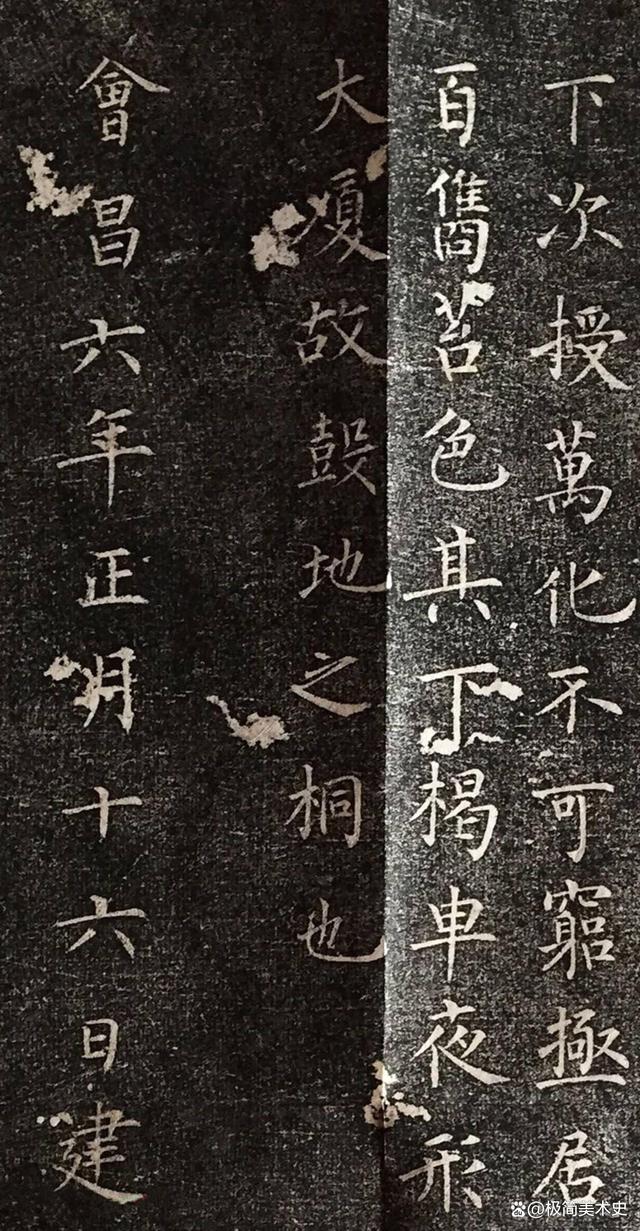 下次授萬化不可窮極居
百苔色其下楬車夜形
大故鼔地之桐也
會昌六年正月十六日建
@极简美术史